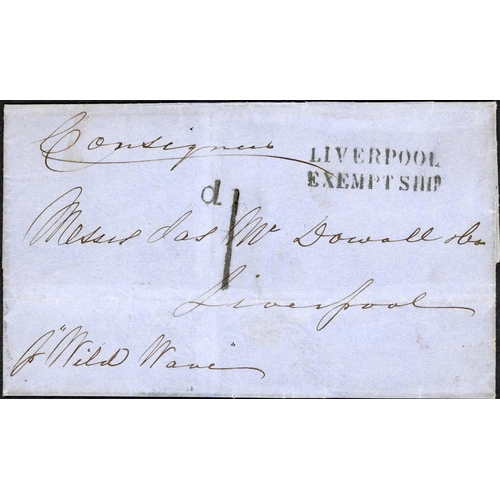 Consignees
LIVERPOOL
EXEMPT SHIP
d
1
Messrs Jas McDowall & Co
Liverpool
p "Wild Wave"